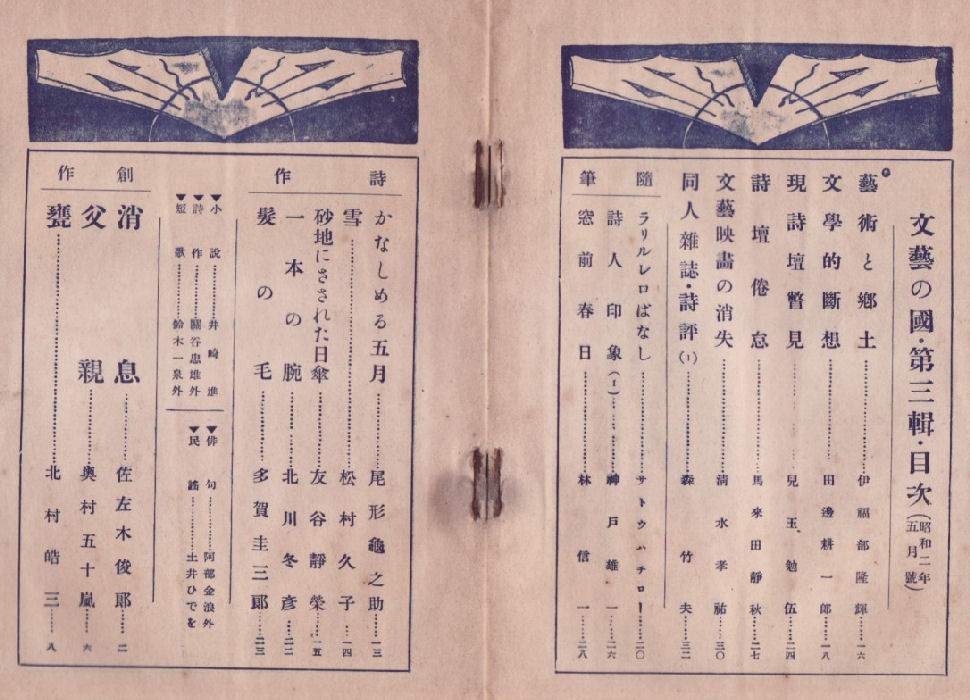 文藝の國・第三輯・目次(昭和二年五月號)
藝術と鄕土……伊福部隆輝……一六
文學的斷想……田邊耕一郎……一八
現詩壇瞥見……兒玉勉伍……二四
詩壇倦怠……馬來田靜秋……二七
文藝映畫の消失……淸水孝祐……三〇
同人雜誌・詩評(1)……森竹夫……三二
隨筆
ラリルレロばなし……サトウハチロー……二〇
詩人印象(1)……神戸雄一……二六
窓前春日……林信一……二八
詩作
かなしめる五月……尾形龜之助……一三
雪……松村久子……一四
砂地にさされた日傘……友谷靜榮……一五
一本の腕……北川冬彥……二二
髮の毛……多賀圭三郎……二三
▼小說……井崎進
▼詩作……關谷忠雄外
▼短歌……鈴木一泉外
▼俳句……阿部金浪外
▼民謠……土井ひでを
創作
消息……佐左木俊郎……二
父親……奧村五十嵐……六
甕……北村皓三……八